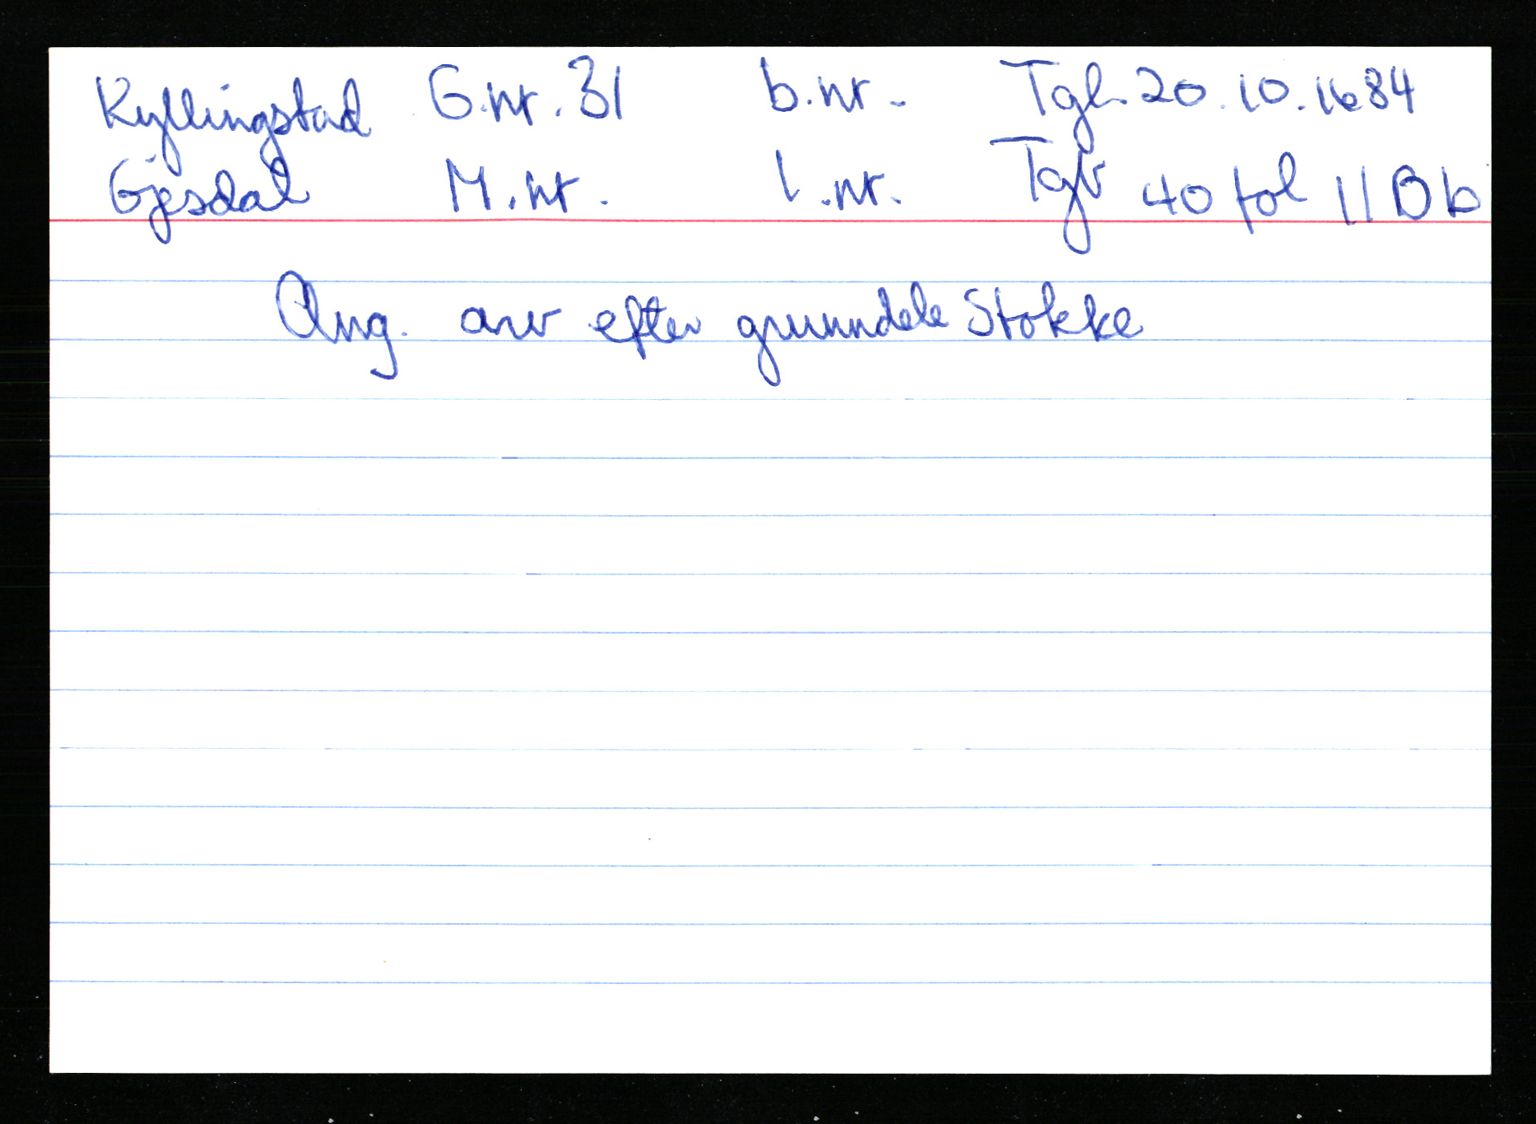 Kyllingstad G.nr. 31 b.nr. Tgl. 20.10.1684
Gjesdal M.nr. l.nr. Tgb 40 fol 11 B b
Ang. arv efter grunndele Stokke